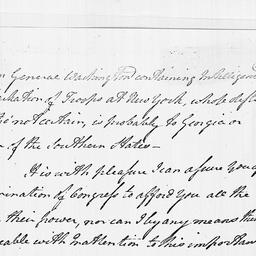 General Washington containing Intelligence
of Troops at New York, whose
not certain, is probably to Georgia or
of the Southern States—
It is with pleasure I can assure you
of Congress to afford you all the
their power, nor can I by any means
with Inattention to this